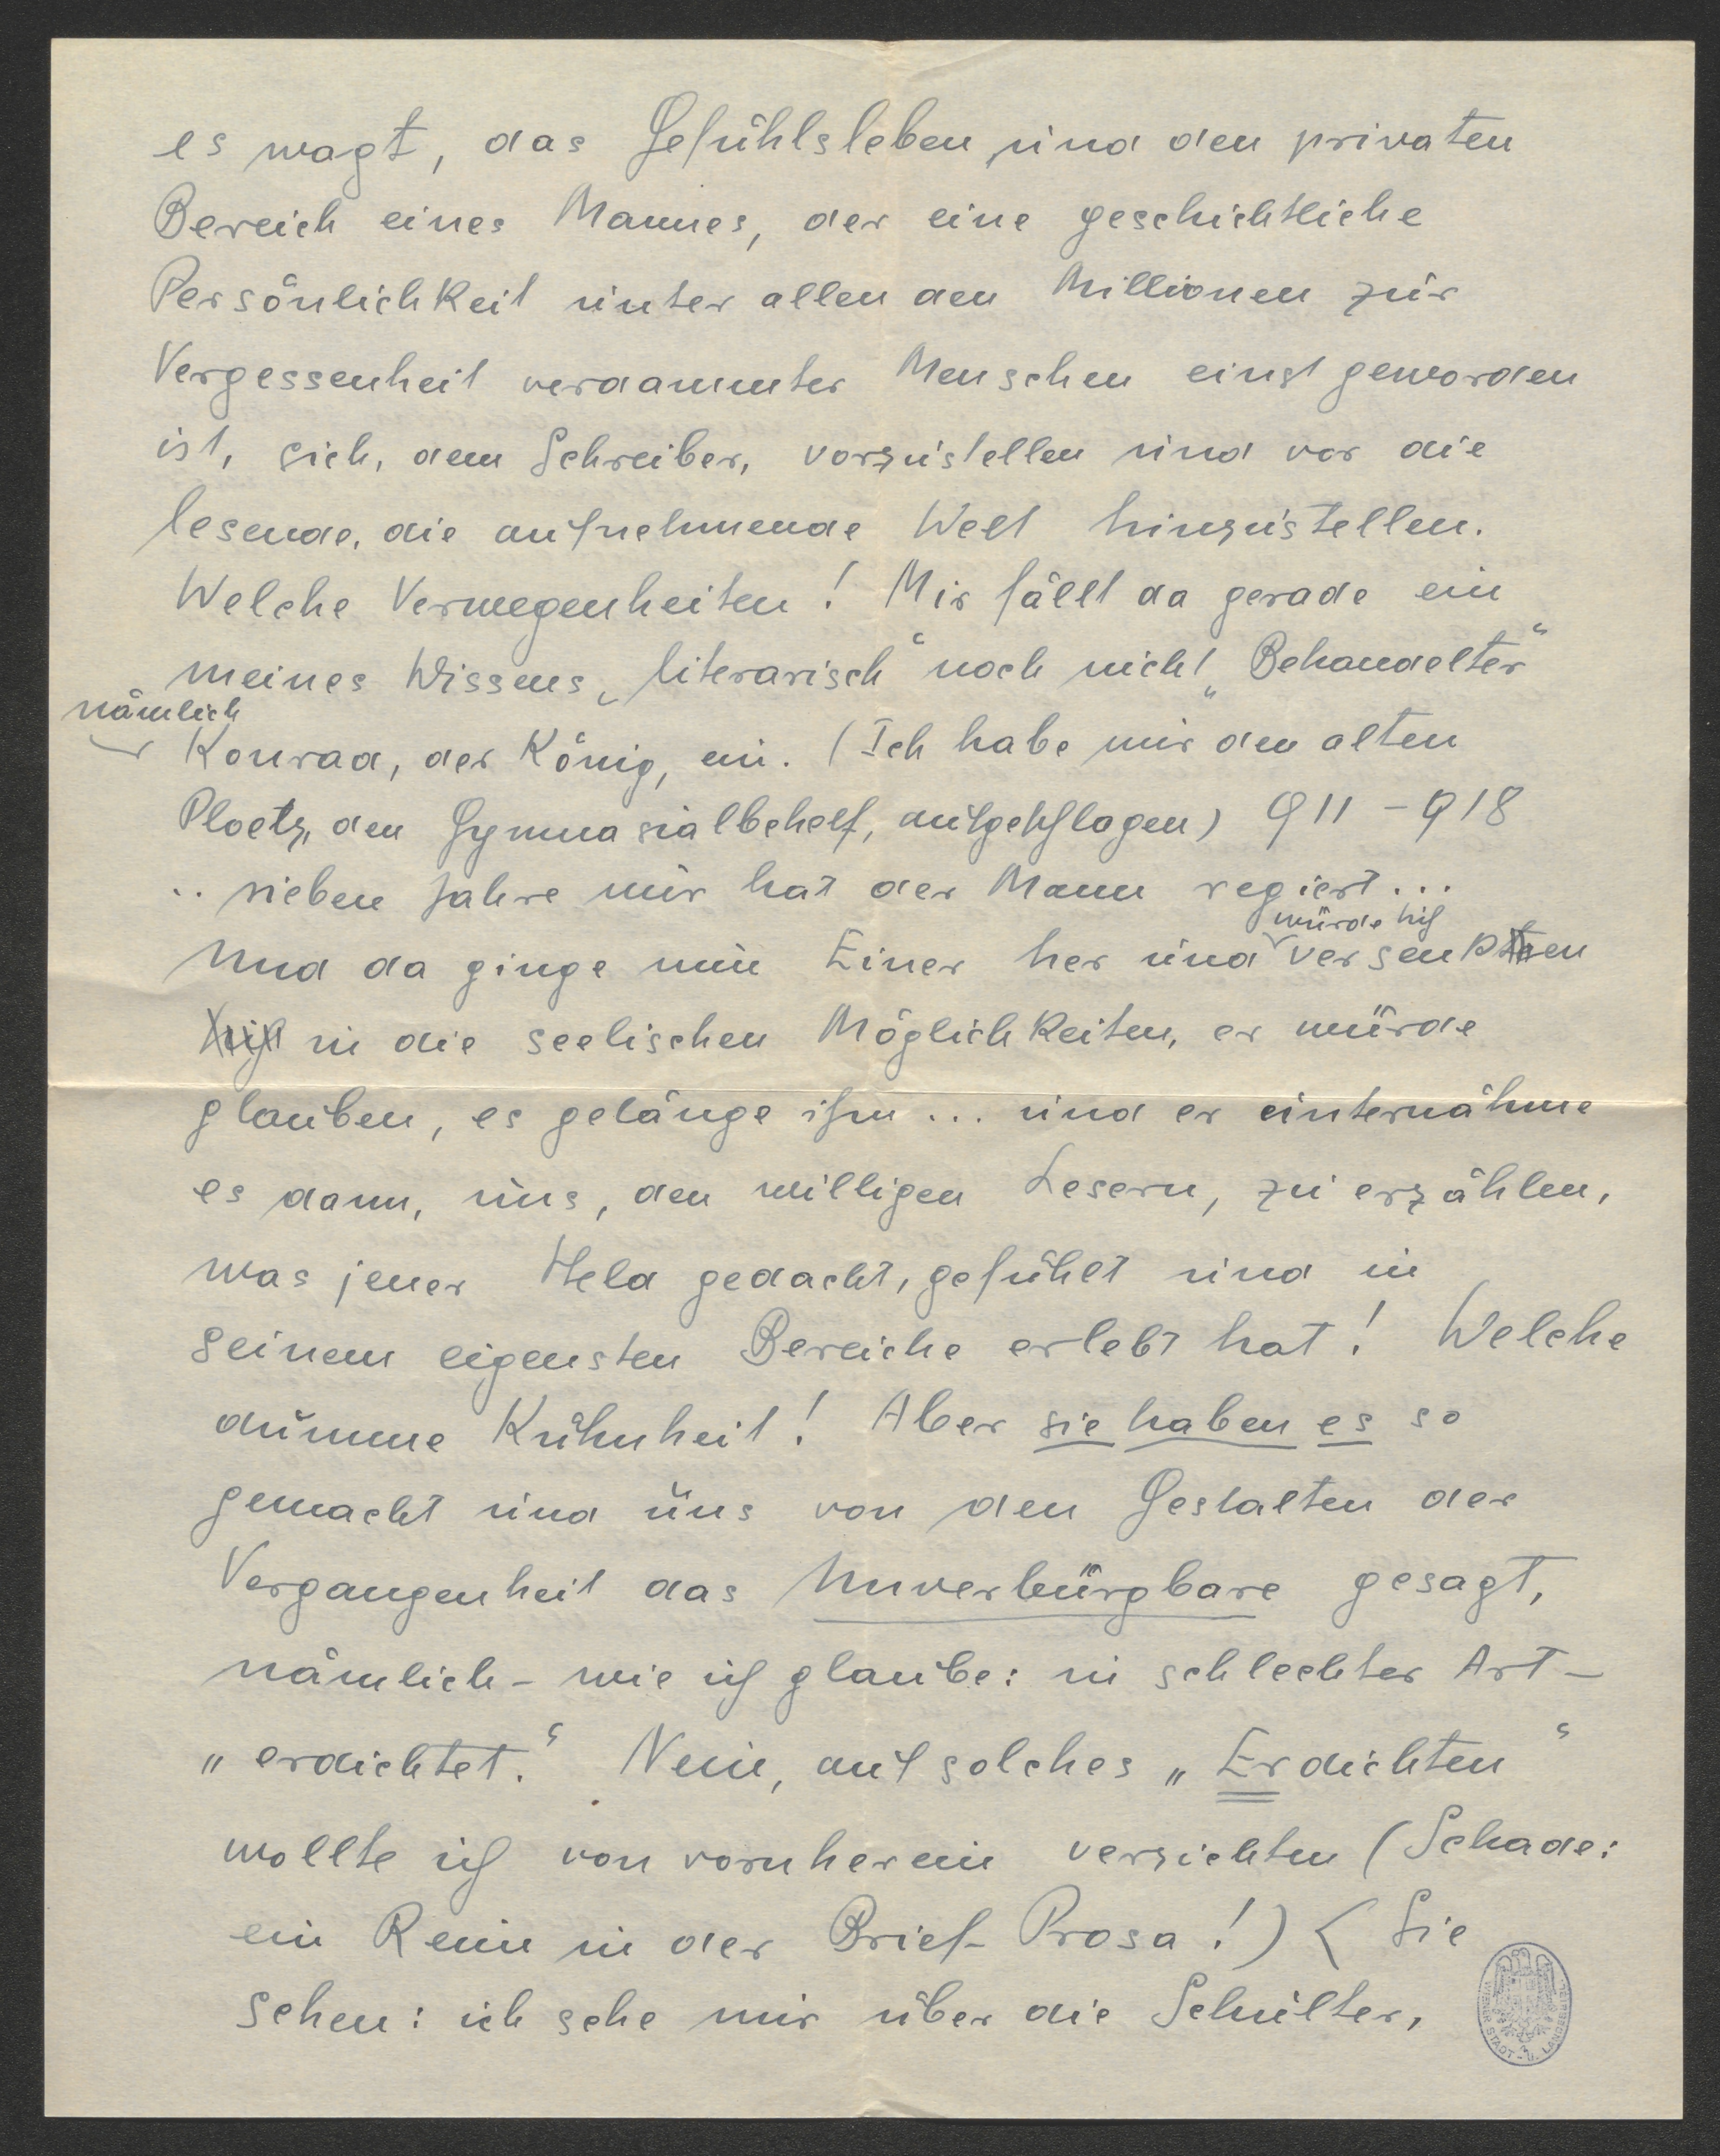 es wagt, das Gefühlsleben und den privaten
Bereich eines Mannes, der eine geschichtliche
Persönlichkeit unter allen den Millionen zur
Vergessenheit verdammter Menschen einst geworden
ist, sich, dem Schreiber, vorzustellen und vor die
lesende, die aufnehmende Welt hinzustellen.
Welche Verwegenheiten! Mir fällt da gerade ein
meines Wissens „literarisch“ noch nicht „Behandelter“
nämlich
Konrad, der König, ein. (Ich habe mir den alten
Ploetz, den Gymnasialbehelf, aufgeschlagen) 911 – 918
.. sieben Jahre nur hat der Mann regiert...
würde sich
Und da ginge nun Einer her und versenken
sich in die seelischen Möglichkeiten, er würde
glauben, es gelänge ihm ... und er unternähme
es dann, uns, den willigen Lesern, zu erzählen,
was jener Held gedacht, gefühlt und in
seinem eigensten Bereiche erlebt hat! Welche
dumme Kühnheit! Aber sie haben es so
gemacht und uns von den Gestalten der
Vergangenheit das Unverbürgbare gesagt,
nämlich – wie ich glaube: in schlechter Art –
„erdichtet.“ Nein, auf solches „Erdichten“
wollte ich von vornherein verzichten (Schade:
ein Reim in der Brief-Prosa!) < Sie
sehen: ich sehe mir über die Schulter,
WIENER STADT- U. LANDESBIBLIOTHEK